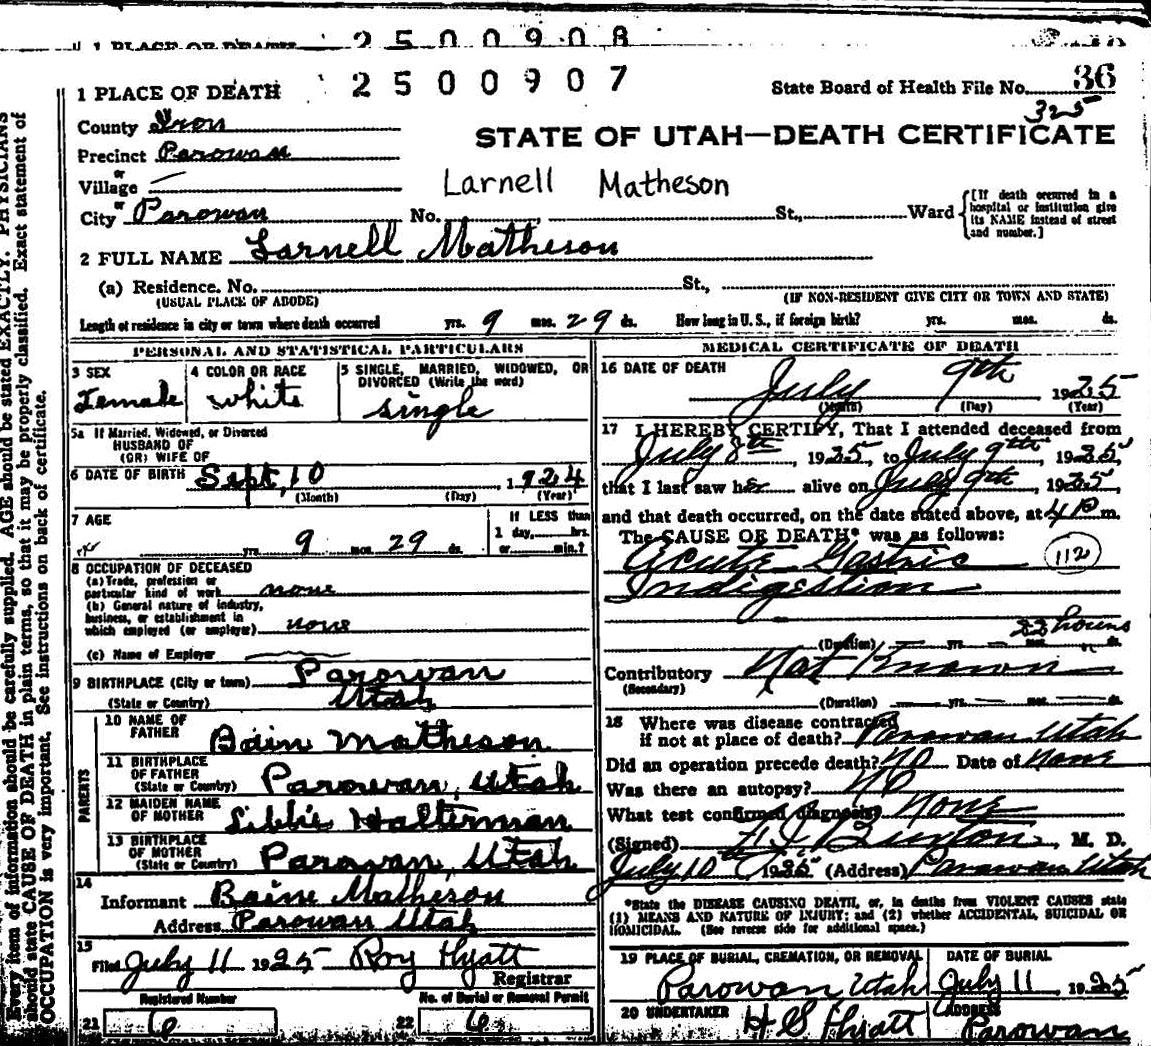 1 PLACE OF DEATH 2500908
1 PLACE OF DEATH 2500907
State Board of Health File No. 36
325
County Iron
STATE OF UTAH—DEATH CERTIFICATE
Precinct Parowan
or
Village —
Larnell Matheson
or
City Parowan No. , St., Ward
[If death occurred in a hospital or institution give its NAME instead of street and number.]
2 FULL NAME Larnell Matheson
(a) Residence. No. St.,
(USUAL PLACE OF ABODE) (IF NON-RESIDENT GIVE CITY OR TOWN AND STATE)
Length of residence in city or town where death occurred yrs. 9 mos. 29 ds. How long in U. S., if foreign birth? yrs. mos. ds.
PERSONAL AND STATISTICAL PARTICULARS
3 SEX
Female
4 COLOR OR RACE
white
5 SINGLE, MARRIED, WIDOWED, OR
DIVORCED (Write the word)
single
5a If Married, Widowed, or Divorced
HUSBAND OF
(OR) WIFE OF
6 DATE OF BIRTH Sept, 10 1924
(Month) (Day) (Year)
7 AGE
yrs. 9 mos. 29 ds.
If LESS than
1 day, hrs.
or min.?
8 OCCUPATION OF DECEASED
(a) Trade, profession or
particular kind of work none
(b) General nature of industry,
business, or establishment in
which employed (or employer) none
(c) Name of Employer
9 BIRTHPLACE (City or town) Parowan
(State or Country) Utah
PARENTS
10 NAME OF
FATHER Bain Matheson
11 BIRTHPLACE
OF FATHER
(State or Country) Parowan, Utah
12 MAIDEN NAME
OF MOTHER Libbie Halterman
13 BIRTHPLACE
OF MOTHER
(State or Country) Parowan, Utah
14
Informant Baine Matheson
Address Parowan Utah
15
Filed July 11 1925 Roy Hyatt
Registrar
Registered Number No. of Burial or Removal Permit
21 6 22 6
MEDICAL CERTIFICATE OF DEATH
16 DATE OF DEATH
July 9th 1925
(Month) (Day) (Year)
17 I HEREBY CERTIFY, That I attended deceased from
July 8th, 1925, to July 9th, 1925,
that I last saw her alive on July 9th, 1925,
and that death occurred, on the date stated above, at 4 P m.
The CAUSE OF DEATH* was as follows:
Acute Gastric 112
Indigestion
hours
(Duration) yrs. mos. ds.
Contributory Not Known
(Secondary)
(Duration) yrs. mos. ds.
18 Where was disease contracted
if not at place of death? Parowan Utah
Did an operation precede death? No Date of None
Was there an autopsy? NO
What test confirmed diagnosis? None
(Signed) , M. D.
July 10th 1925 (Address) Parowan Utah
*State the DISEASE CAUSING DEATH, or, in deaths from VIOLENT CAUSES state
(1) MEANS AND NATURE OF INJURY; and (2) whether ACCIDENTAL, SUICIDAL OR
HOMICIDAL. (See reverse side for additional space.)
19 PLACE OF BURIAL, CREMATION, OR REMOVAL
Parowan Utah
DATE OF BURIAL
July 11 1925
20 UNDERTAKER
H S Hyatt
ADDRESS
Parowan
Every item of information should be carefully supplied. AGE should be stated EXACTLY. PHYSICIANS
should state CAUSE OF DEATH in plain terms, so that it may be properly classified. Exact statement of
OCCUPATION is very important. See instructions on back of certificate.